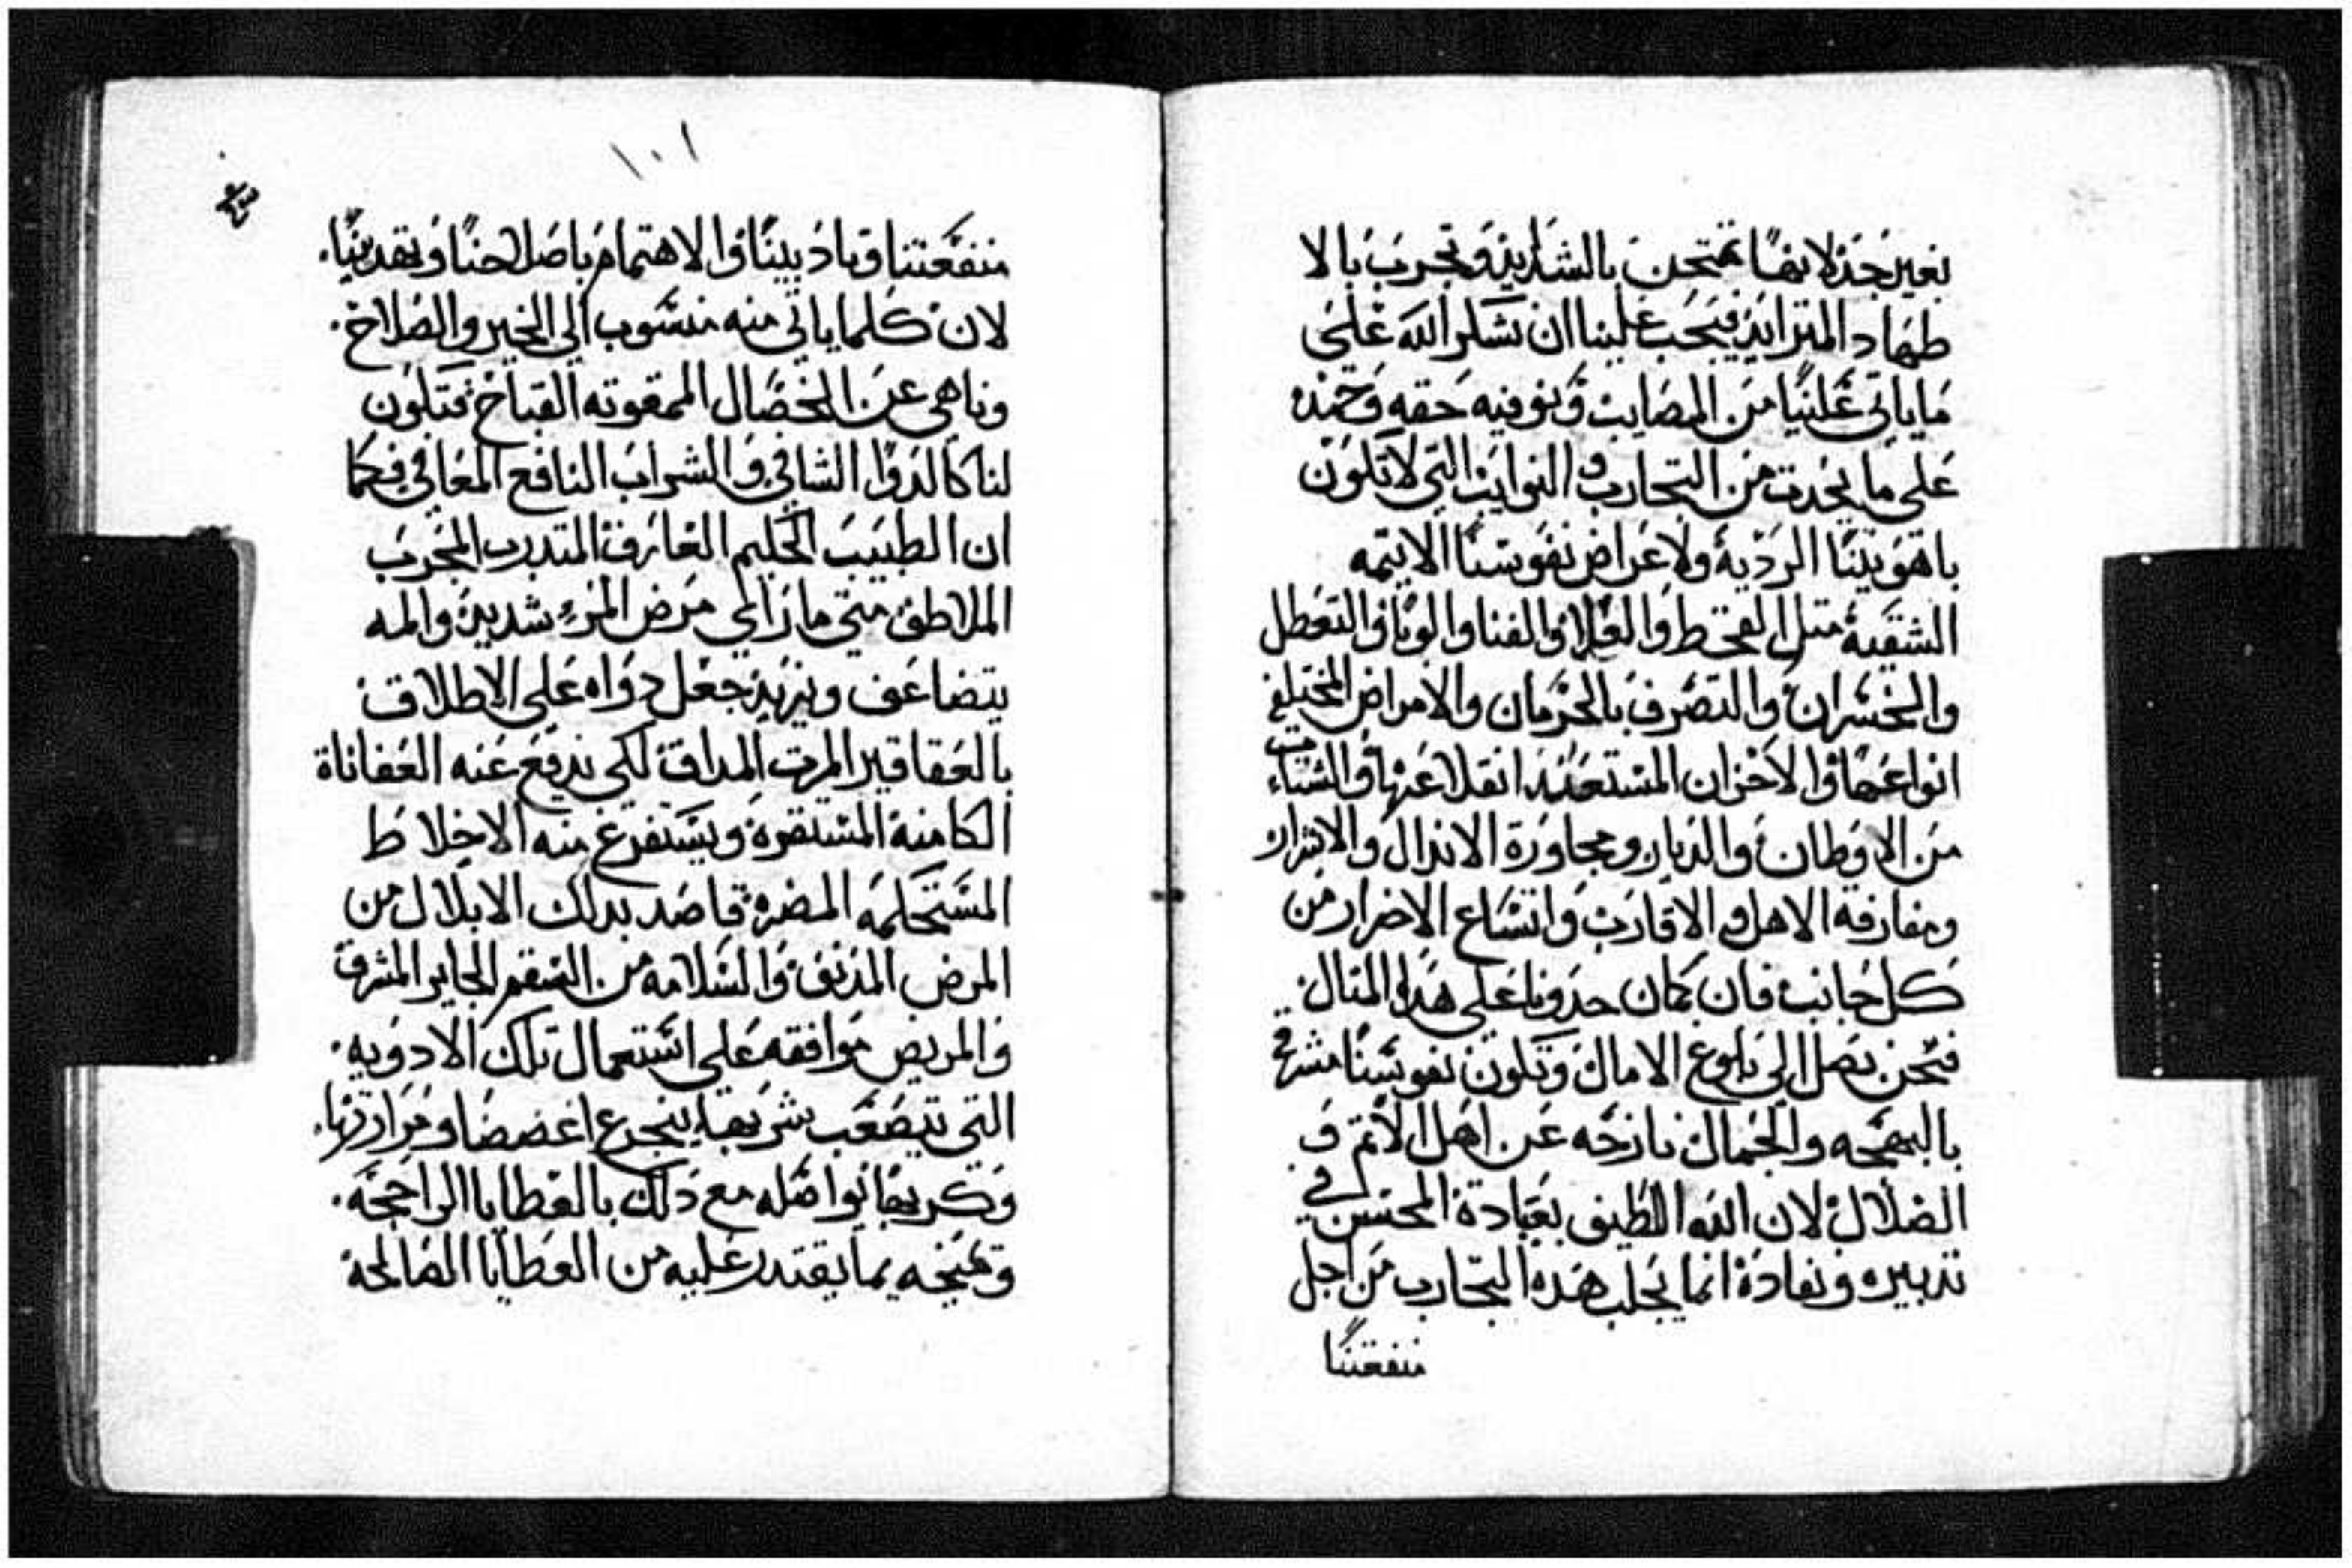 بغير جد لانها تمتحن بالشدايد وتجرب بالا
طهاد المتزايد فيجب علينا ان نشكر الله على
ما ياتي علينا من المصايب ونوفيه حقه وحمده
على ما يحدت من التجارب والنوايب التي لا تكون
باهويتنا الرديه ولاغراض نفوسنا الاتيمه
الشقيه متل القحط والغلا والفنا والوبا والتعطل
والخسران والتصرف بالحرمان والامراض المختلفه
انواعها والاحزان المستبعد انقلاعها والشتات
من الاوطان والديار ومجاورة الاندال والاشرار
ومفارقه الاهل والاقارب واتساع الاضرار من
كل جانب فان كان حدونا على هدا المتال
فنحن نصل الى بلوغ الامال وتكون نفوسنا مشرقه
بالبهجه والجمال نازحه عن اهل الاتم و
الضلال لان الله اللطيف بعباده المحسن في
تدبيره ونفاده انما يجلب هده التجارب من اجل
منفعتنا
١٠١
منفعتنا وتاديبنا والاهتمام باصلاحنا وتهديبنا
لان كلما ياتي منه منسوب الي الخير والصلاح
وناهي عن الخصال الممقوته القباح فتكون
لنا كالدوا الشافي والشراب النافع المعافي فكما
ان الطبيب الحكيم العارف المتدرب المجرب
الملاطف متي ما راي مرض المرء شديد والمه
يتضاعف ويزيد جعل دواه على الاطلاق
بالعقاقير المرت المداق لكي يدفع عنه العفاناة
الكامنه المستقره ويستفرغ منه الاخلاط
المستحكمه المضره قاصد بدلك الابلال من
المرض المدنف والسلامه من السقم الجاير المشرف
والمريض موافقه على استعمال تلك الادويه
التي تصعب شربها يتجرع اغصضا ومرارتها
وكريها نواصله مع دلك بالعطايا الراجحه
وتمنحه بما يقتدر عليه من العطايا الصالحه